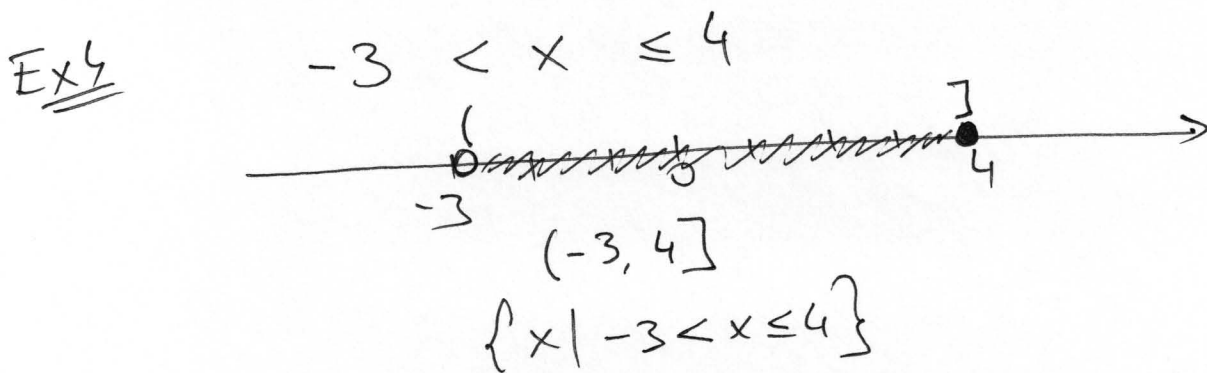 Ex4 -3 < x ≤ 4
( ]
-3 0 4
(-3, 4]
{x | -3 < x ≤ 4}